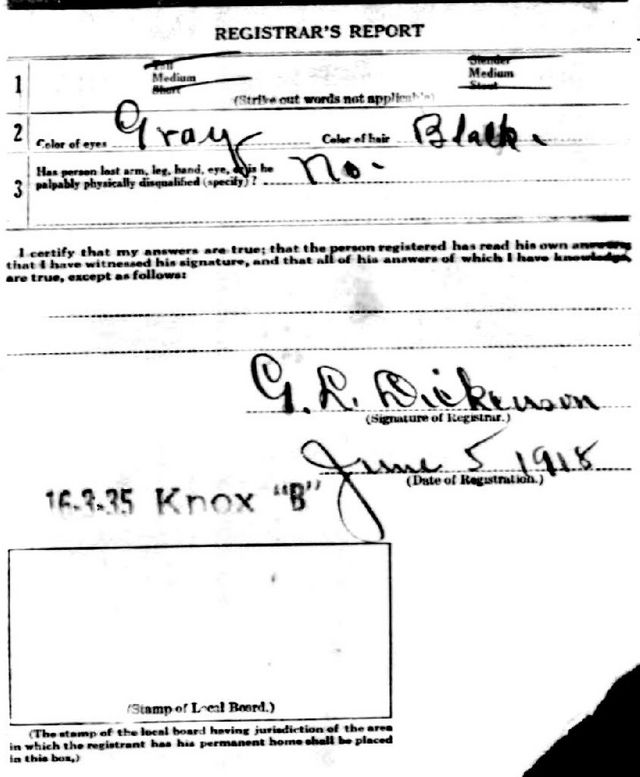 REGISTRAR'S REPORT
1
Tall
Medium
Short
Slender
Medium
Stout
(Strike out words not applicable)
2 Color of eyes Gray Color of hair Black.
3 Has person lost arm, leg, hand, eye, or is he
palpably physically disqualified (specify)? No.
I certify that my answers are true; that the person registered has read his own answers,
that I have witnessed his signature, and that all of his answers of which I have knowledge,
are true, except as follows:
G. L. Dickenson
(Signature of Registrar.)
June 5 1918
(Date of Registration.)
16-3-35 Knox "B"
(Stamp of Local Board.)
(The stamp of the local board having jurisdiction of the area
in which the registrant has his permanent home shall be placed
in this box.)